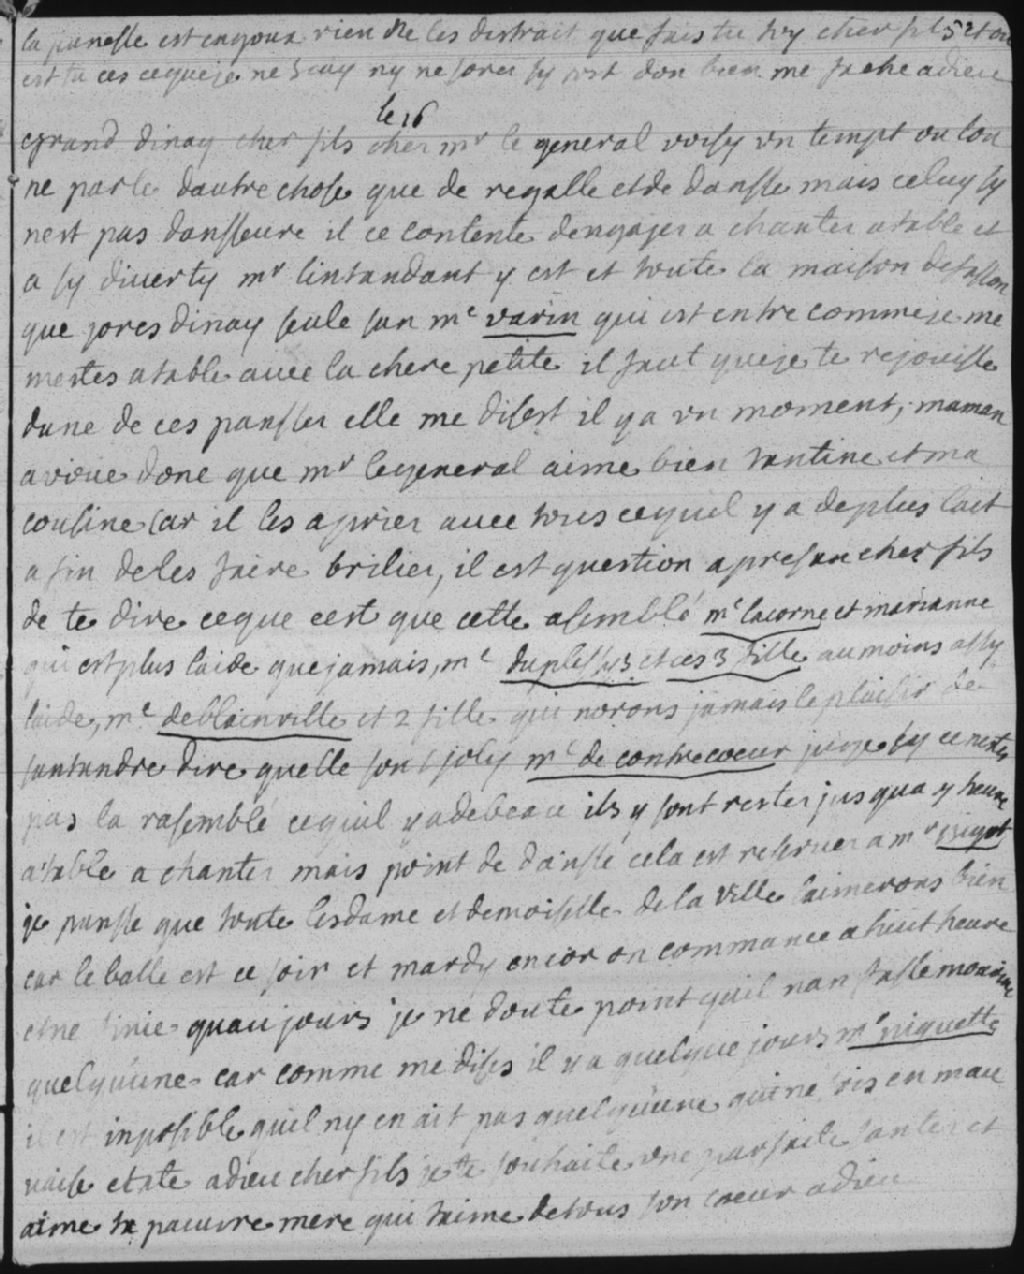 la junesse est en joux rien ne les distrait que fais tu toy cher fils et ou
est tu ces ceque je ne scay ny ne sores sy tost don bien me fache adieu
le 16
grand dinay cher fils cher mr le general voisy un tempt ou lon
ne parle dautre chose que de regalle et de dansse mais celuy sy
nest pas dansseure il ce contente dengager a chanter a table et
a sy diverty mr lintandant y est et toute la maison de fasson
que jores dinay seule san me varin qui est entre comme je me
mestes a table avec la chere petite il faut que je te rejouisse
dune de ces pansser elle me disest il y a un moment, maman
avoue donc que mr le general aime bien tantine et ma
cousine car il les a prier avec tous cequil y a de plus lait
afin de les faire brilier, il est question apresan cher fils
de te dire ceque cest que cette asemblé me lacorne et marianne
qui est plus laide que jamais, me duplessys et ces 3 fille au moins assy
laide, me deblainville et 2 fille qui norons jamais le plaisir de
santandre dire quelle son joly me de contrecoeur juge sy ce nestes
pas la rasemblé cequil y a de beau ils y sont rester jusqua y heure
a table a chanter mais point de dansse cela est reserver a mr bigot
je pansse que toute les dame et demoiselle de la ville laimerons bien
car le balle est ce soir et mardy encor on commance a huit heure
et ne finie quau jours je ne doute point quil nan fasse mourir
quelquune car comme me dises il y a quelque jours mr niquette
il est inposible quil ny en ait pas quelquune qui ne sois en mau
vaise etate adieu cher fils je te souhaite une parfaite santer et
aime ta pauvre mere qui taime de tous son coeur adieu